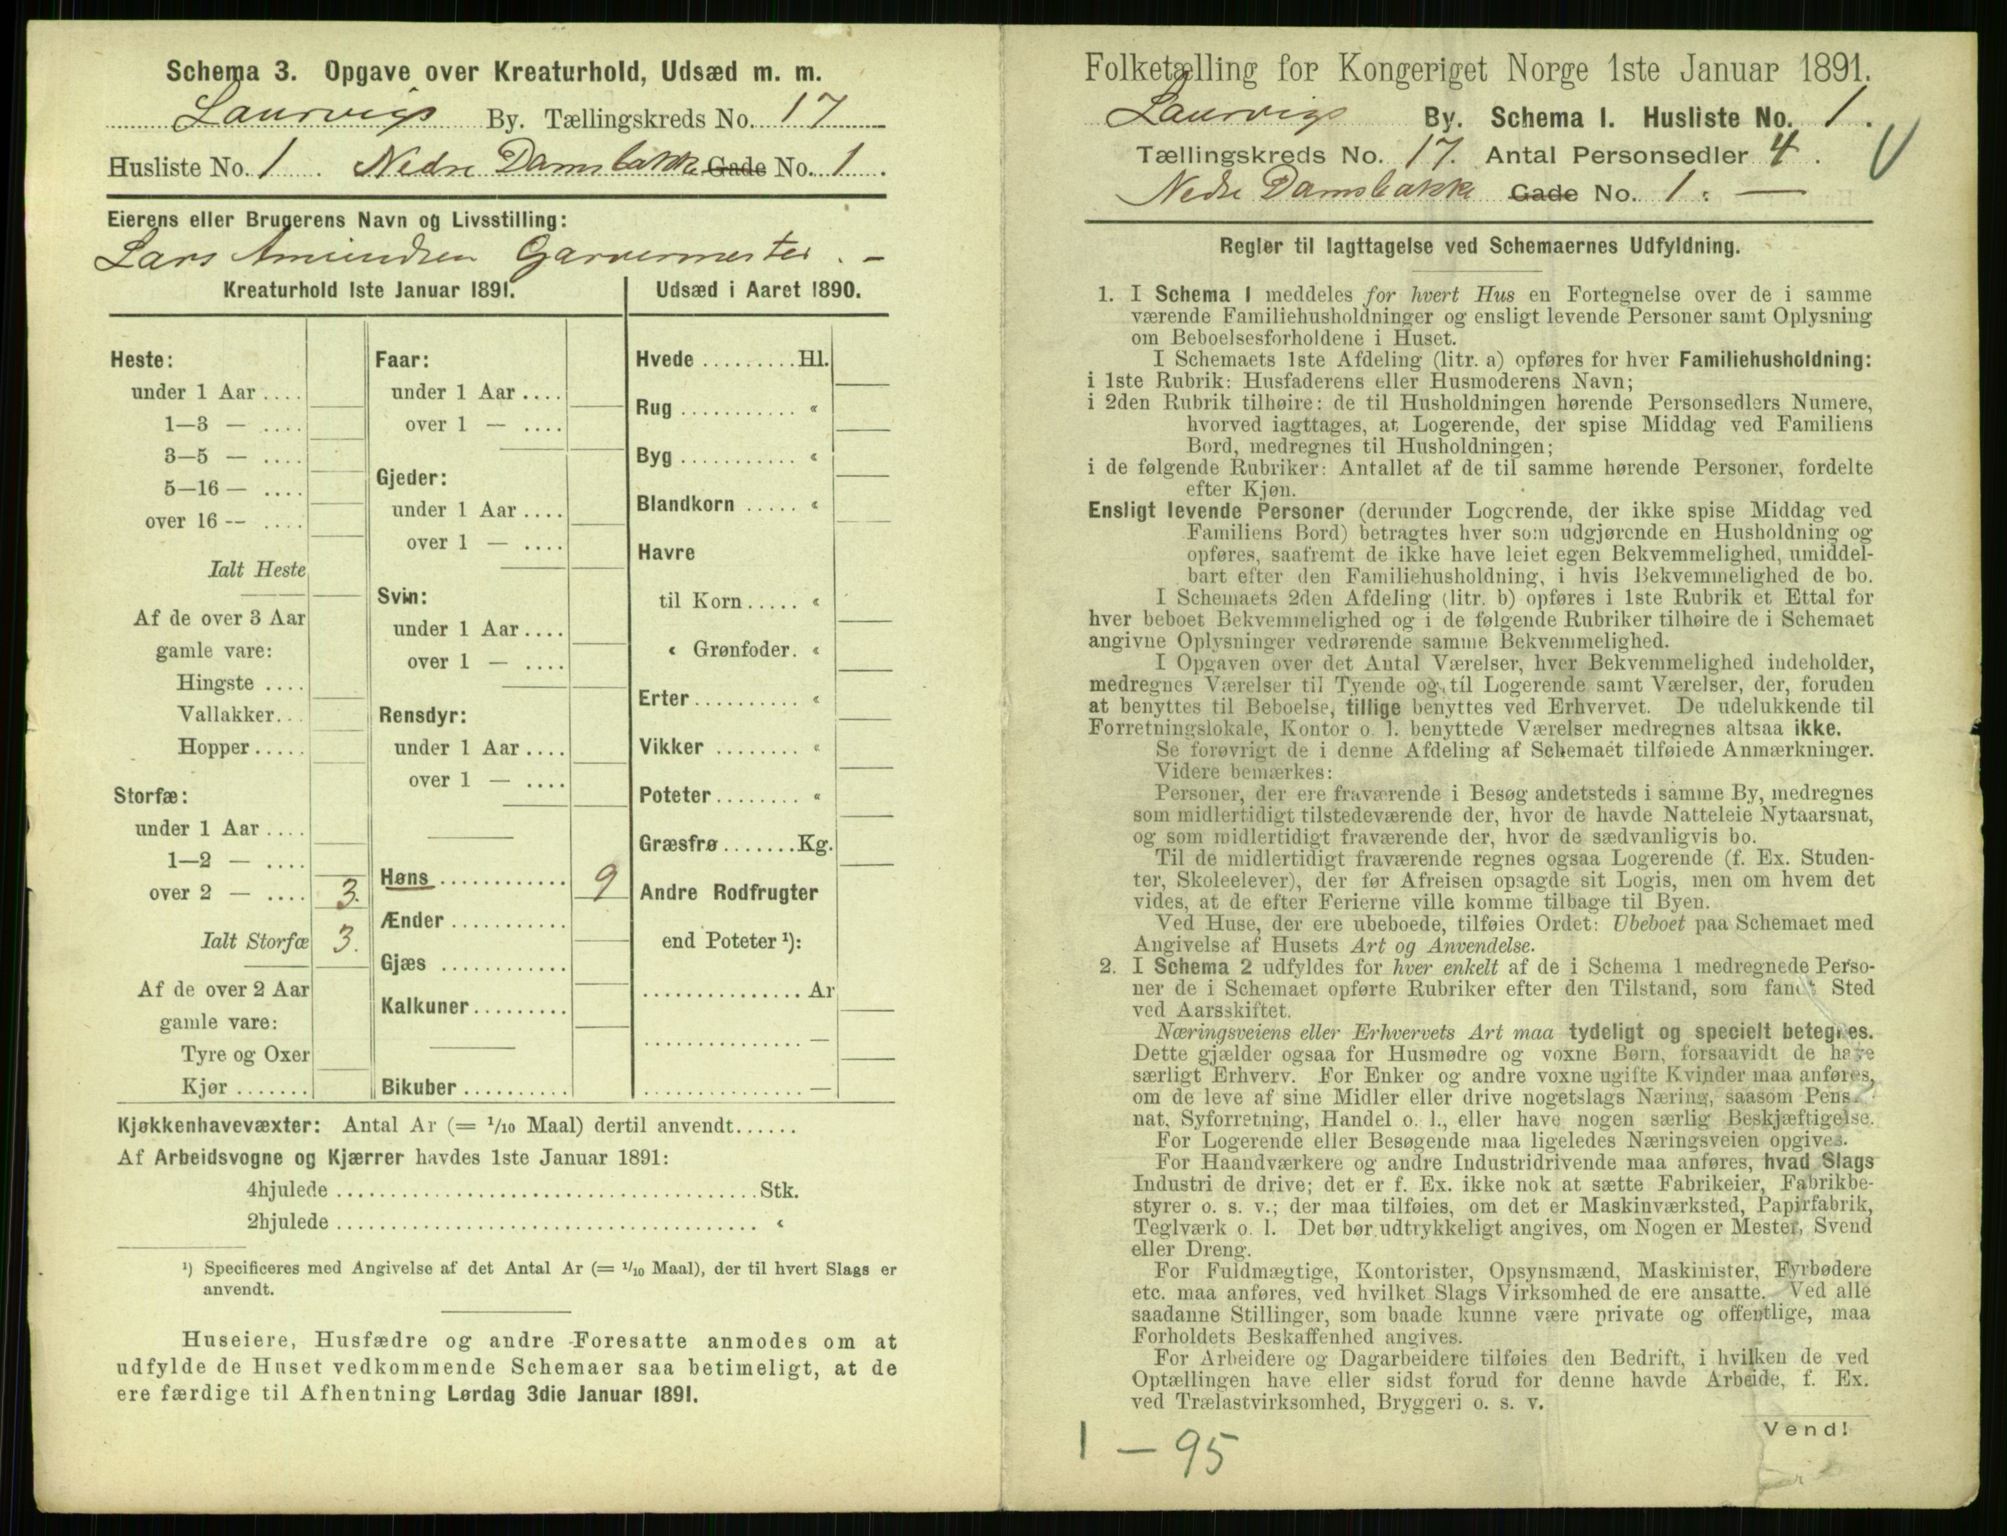 Schema 3. Opgave over Kreaturhold, Udsæd m. m.
Laurvigs By. Tællingskreds No. 17
Husliste No. 1. Nedre Damsbakke Gade No. 1.
Eierens eller Brugerens Navn og Livsstilling:
Lars Amundsen Garvermester. –
Kreaturhold 1ste Januar 1891.
Heste:
under 1 Aar ....
1—3 — ....
3—5 — ....
5—16 — ....
over 16 -- ....
Ialt Heste
Af de over 3 Aar
gamle vare:
Hingste ....
Vallakker...
Hopper.....
Storfæ:
under 1 Aar ....
1—2 — ....
over 2 — .... 3.
Ialt Storfæ 3.
Af de over 2 Aar
gamle vare:
Tyre og Oxer
Kjør .......
Faar:
under 1 Aar ....
over 1 — ....
Gjeder:
under 1 Aar ....
over 1 — ....
Svin:
under 1 Aar ....
over 1 — ....
Rensdyr:
under 1 Aar ....
over 1 — ....
Høns ............ 9
Ænder ...........
Gjæs ............
Kalkuner.........
Bikuber ..........
Udsæd i Aaret 1890.
Hvede .........Hl.
Rug ........... «
Byg ........... «
Blandkorn ..... «
Havre
til Korn..... «
« Grønfoder. «
Erter.......... «
Vikker ........ «
Poteter........ «
Græsfrø .......Kg.
Andre Rodfrugter
end Poteter ¹):
............... Ar
............... —
............... —
Kjøkkenhavevæxter: Antal Ar (= 1/10 Maal) dertil anvendt......
Af Arbeidsvogne og Kjærrer havdes 1ste Januar 1891:
4hjulede ......................................Stk.
2hjulede ...................................... «
¹) Specificeres med Angivelse af det Antal Ar (= 1/10 Maal), der til hvert Slags er
anvendt.
Huseiere, Husfædre og andre Foresatte anmodes om at
udfylde de Huset vedkommende Schemaer saa betimeligt, at de
ere færdige til Afhentning Lørdag 3die Januar 1891.
Folketælling for Kongeriget Norge 1ste Januar 1891.
Laurvigs By. Schema 1. Husliste No. 1.
Tællingskreds No. 17. Antal Personsedler 4.
Nedre Damsbakke Gade No. 1. —
Regler til Iagttagelse ved Schemaernes Udfyldning.
1. I Schema 1 meddeles for hvert Hus en Fortegnelse over de i samme
værende Familiehusholdninger og ensligt levende Personer samt Oplysning
om Beboelsesforholdene i Huset.
I Schemaets 1ste Afdeling (litr. a) opføres for hver Familiehusholdning:
i 1ste Rubrik: Husfaderens eller Husmoderens Navn;
i 2den Rubrik tilhøire: de til Husholdningen hørende Personsedlers Numere,
hvorved iagttages, at Logerende, der spise Middag ved Familiens
Bord, medregnes til Husholdningen;
i de følgende Rubriker: Antallet af de til samme hørende Personer, fordelte
efter Kjøn.
Ensligt levende Personer (derunder Logerende, der ikke spise Middag ved
Familiens Bord) betragtes hver som udgjørende en Husholdning og
opføres, saafremt de ikke have leiet egen Bekvemmelighed, umiddel-
bart efter den Familiehusholdning, i hvis Bekvemmelighed de bo.
I Schemaets 2den Afdeling (litr. b) opføres i 1ste Rubrik et Ettal for
hver beboet Bekvemmelighed og i de følgende Rubriker tilhøire de i Schemaet
angivne Oplysninger vedrørende samme Bekvemmelighed.
I Opgaven over det Antal Værelser, hver Bekvemmelighed indeholder,
medregnes Værelser til Tyende og til Logerende samt Værelser, der, foruden
at benyttes til Beboelse, tillige benyttes ved Erhvervet. De udelukkende til
Forretningslokale, Kontor o. l. benyttede Værelser medregnes altsaa ikke.
Se forøvrigt de i denne Afdeling af Schemaet tilføiede Anmærkninger.
Videre bemærkes:
Personer, der ere fraværende i Besøg andetsteds i samme By, medregnes
som midlertidigt tilstedeværende der, hvor de havde Natteleie Nytaarsnat,
og som midlertidigt fraværende der, hvor de sædvanligvis bo.
Til de midlertidigt fraværende regnes ogsaa Logerende (f. Ex. Studen-
ter, Skoleelever), der før Afreisen opsagde sit Logis, men om hvem det
vides, at de efter Ferierne ville komme tilbage til Byen.
Ved Huse, der ere ubeboede, tilføies Ordet: Ubeboet paa Schemaet med
Angivelse af Husets Art og Anvendelse.
2. I Schema 2 udfyldes for hver enkelt af de i Schema 1 medregnede Perso-
ner de i Schemaet opførte Rubriker efter den Tilstand, som fandt Sted
ved Aarsskiftet.
Næringsveiens eller Erhvervets Art maa tydeligt og specielt betegnes.
Dette gjælder ogsaa for Husmødre og voxne Børn, forsaavidt de have
særligt Erhverv. For Enker og andre voxne ugifte Kvinder maa anføres,
om de leve af sine Midler eller drive nogetslags Næring, saasom Pens-
nat, Syforretning, Handel o. l., eller have nogen særlig Beskjæftigelse.
For Logerende eller Besøgende maa ligeledes Næringsveien opgives.
For Haandværkere og andre Industridrivende maa anføres, hvad Slags
Industri de drive; det er f. Ex. ikke nok at sætte Fabrikeier, Fabrikbe-
styrer o. s. v.; der maa tilføies, om det er Maskinværksted, Papirfabrik,
Teglværk o. l. Det bør udtrykkeligt angives, om Nogen er Mester, Svend
eller Dreng.
For Fuldmægtige, Kontorister, Opsynsmænd, Maskinister, Fyrbødere
etc. maa anføres, ved hvilket Slags Virksomhed de ere ansatte. Ved alle
saadanne Stillinger, som baade kunne være private og offentlige, maa
Forholdets Beskaffenhed angives.
For Arbeidere og Dagarbeidere tilføies den Bedrift, i hvilken de ved
Optællingen have eller sidst forud for denne havde Arbeide, f. Ex.
ved Trælastvirksomhed, Bryggeri o. s. v.
Vend!
1 — 95